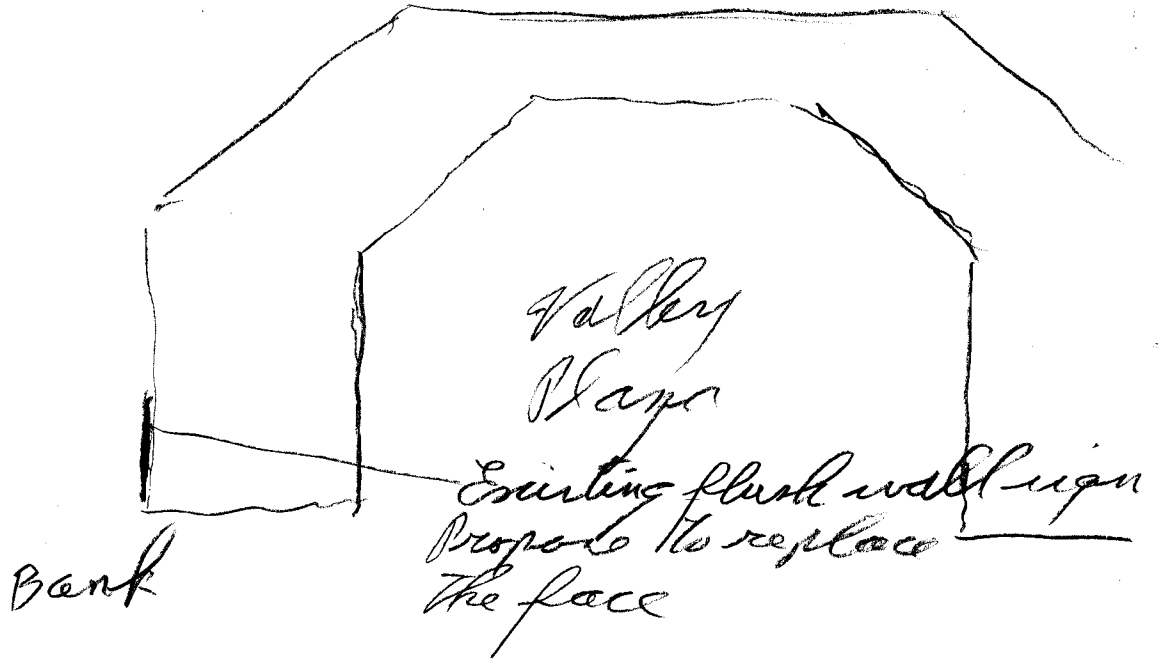 Valley
Plaza
Existing flush wall sign
Propose to replace
The face
Bank